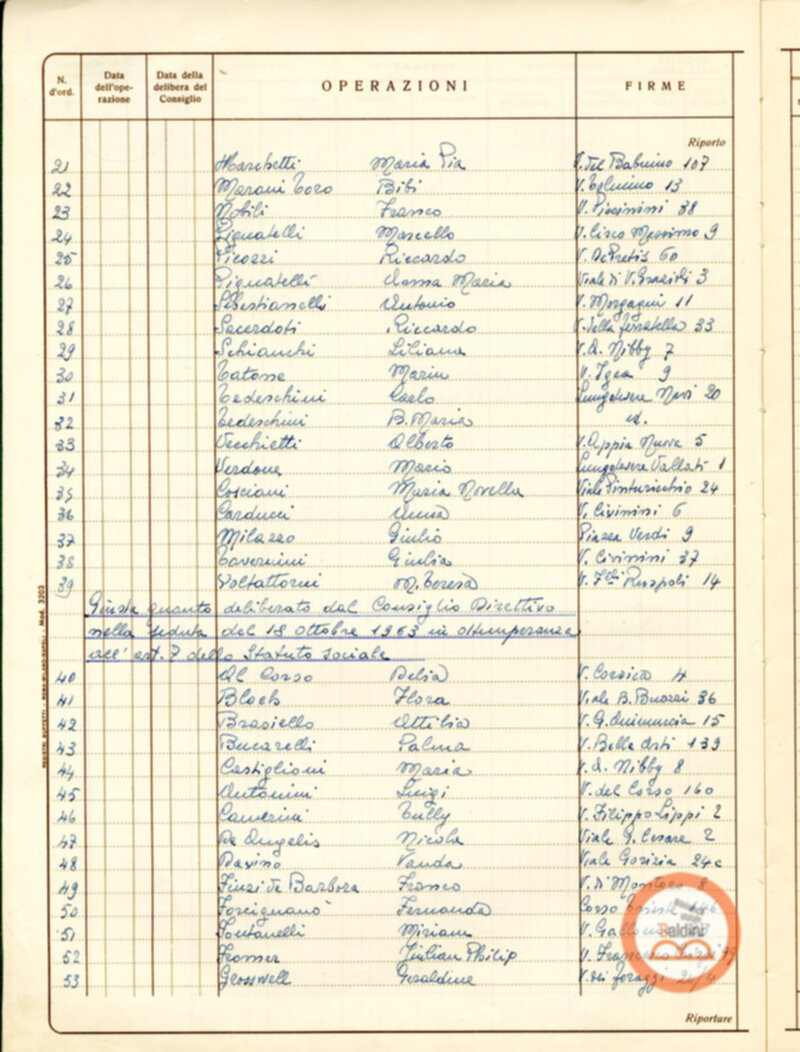 N. d'ord. Data dell'ope- razione Data della delibera del Consiglio OPERAZIONI FIRME
Riporto
21 Marchetti Maria Pia V. del Babuino 107
22 Marani Toro Bibi V. Tolmino 13
23 Nobili Franco V. Piccinini 38
24 Pignatelli Marcello V. Circo Massimo 9
25 Picozzi Riccardo V. De Pretis 60
26 Pignatelli Anna Maria Viale di V. Graziosi 3
27 Sebastianelli Antonio V. Morgagni 11
28 Sacerdoti Riccardo V. della Ferratella 33
29 Schianchi Liliana V. A. Nibby 7
30 Marin V. Igea 9
31 Tedeschini Carlo Lungotevere Navi 20
32 Tedeschini B. Maria id.
33 Vecchietti Alberto V. Appia Nuova 5
34 Verdone Mario Lungotevere Vallati 1
35 Cosciani Maria Novella Viale Pinturicchio 24
36 Carducci Anna V. Civinini 6
37 Milazzo Giulio Piazza Verdi 9
38 Tavernini Giulia V. Civinini 37
39 Voltattorni M. Teresa V. F.lli Ruspoli 14
Giusta quanto deliberato dal Consiglio Direttivo
nella seduta del 18 ottobre 1963 in ottemperanza
all'art. 7 dello Statuto Sociale
40 Al Corso Delia V. Corsica 4
41 Bloch Flora Viale B. Buozzi 36
42 Brasiello Attilia V. G. Animuccia 15
43 Bucarelli Palma V. Belle Arti 139
44 Castiglioni Maria V. A. Nibby 8
45 Antonini Luigi V. del Corso 160
46 Camerini Tully V. Filippo Lippi 2
47 De Angelis Nicola Viale G. Cesare 2
48 Davino Vanda Viale Gorizia 24c
49 Finzi de Barbora Franco V. di 8
50 Forcignanò Fernanda Corso Trieste
51 Fontanelli Miriam
52 Fromer Julian Philip V.
53 Grosswell Geraldine V. dei Foraggi
Riportare
Baldini